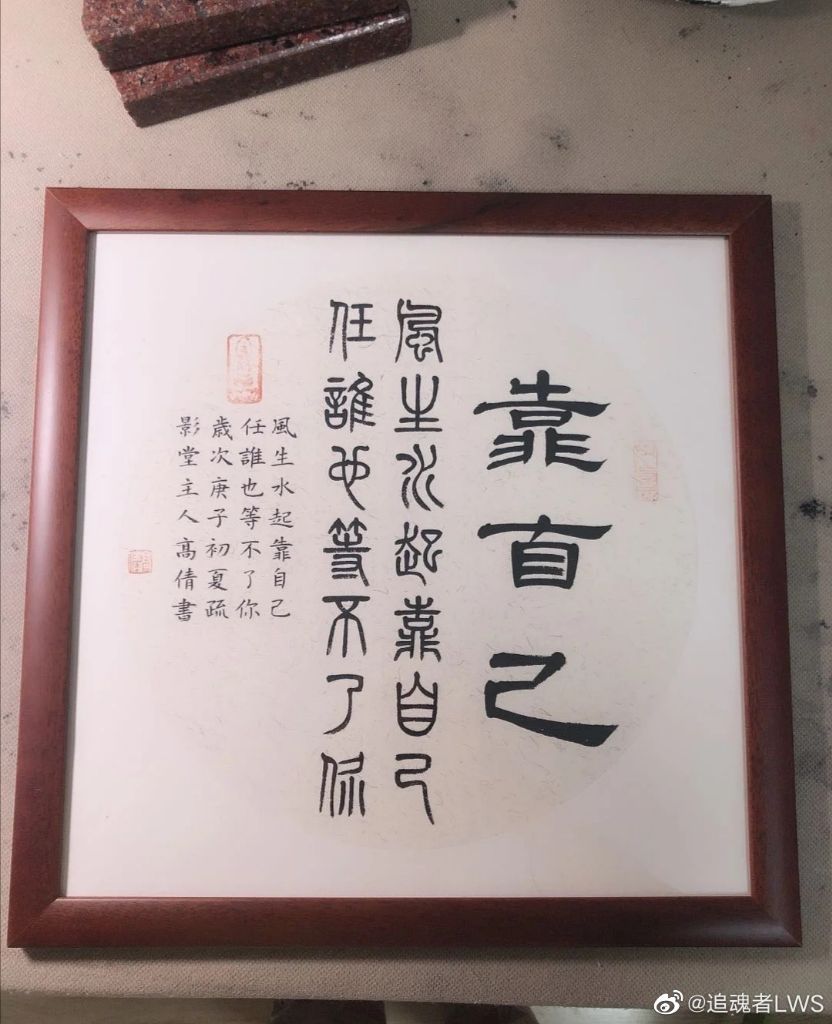 靠自己
風生水起靠自己
任誰也等不了你
風生水起靠自己
任誰也等不了你
歲次庚子初夏疏
影堂主人高倩書
@追魂者LWS